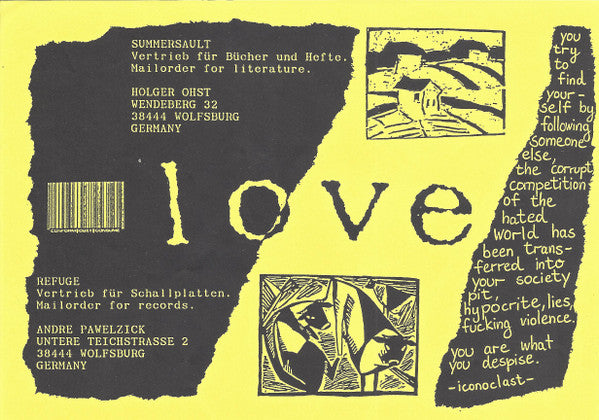 SUMMERSAULT
Vertrieb für Bücher und Hefte.
Mailorder for literature.
HOLGER OHST
WENDEBERG 32
38444 WOLFSBURG
GERMANY
love
REFUGE
Vertrieb für Schallplatten.
Mailorder for records.
ANDRE PAWELZICK
UNTERE TEICHSTRASSE 2
38444 WOLFSBURG
GERMANY
you
try
to
find
your-
self by
following
someone
else,
the corrupt
competition
of the
hated
world has
been trans-
ferred into
your society
pit,
hypocrite, lies,
fucking violence.
you are what
you despise.
-iconoclast-